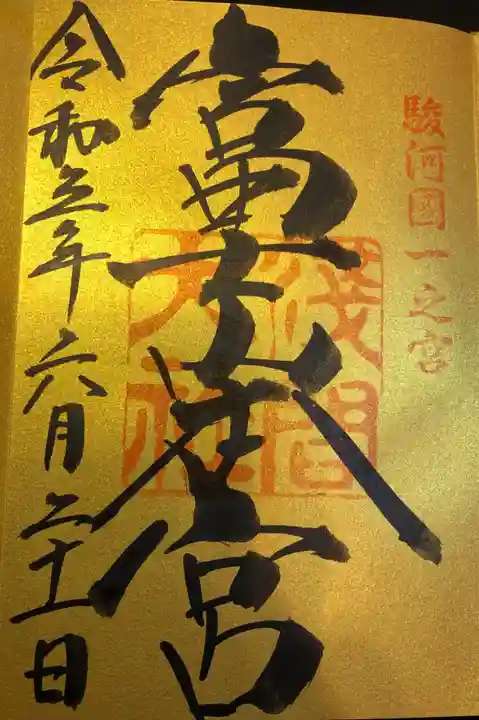 駿河國一之宮
富士本宮
淺間
大社
令和五年六月二十一日